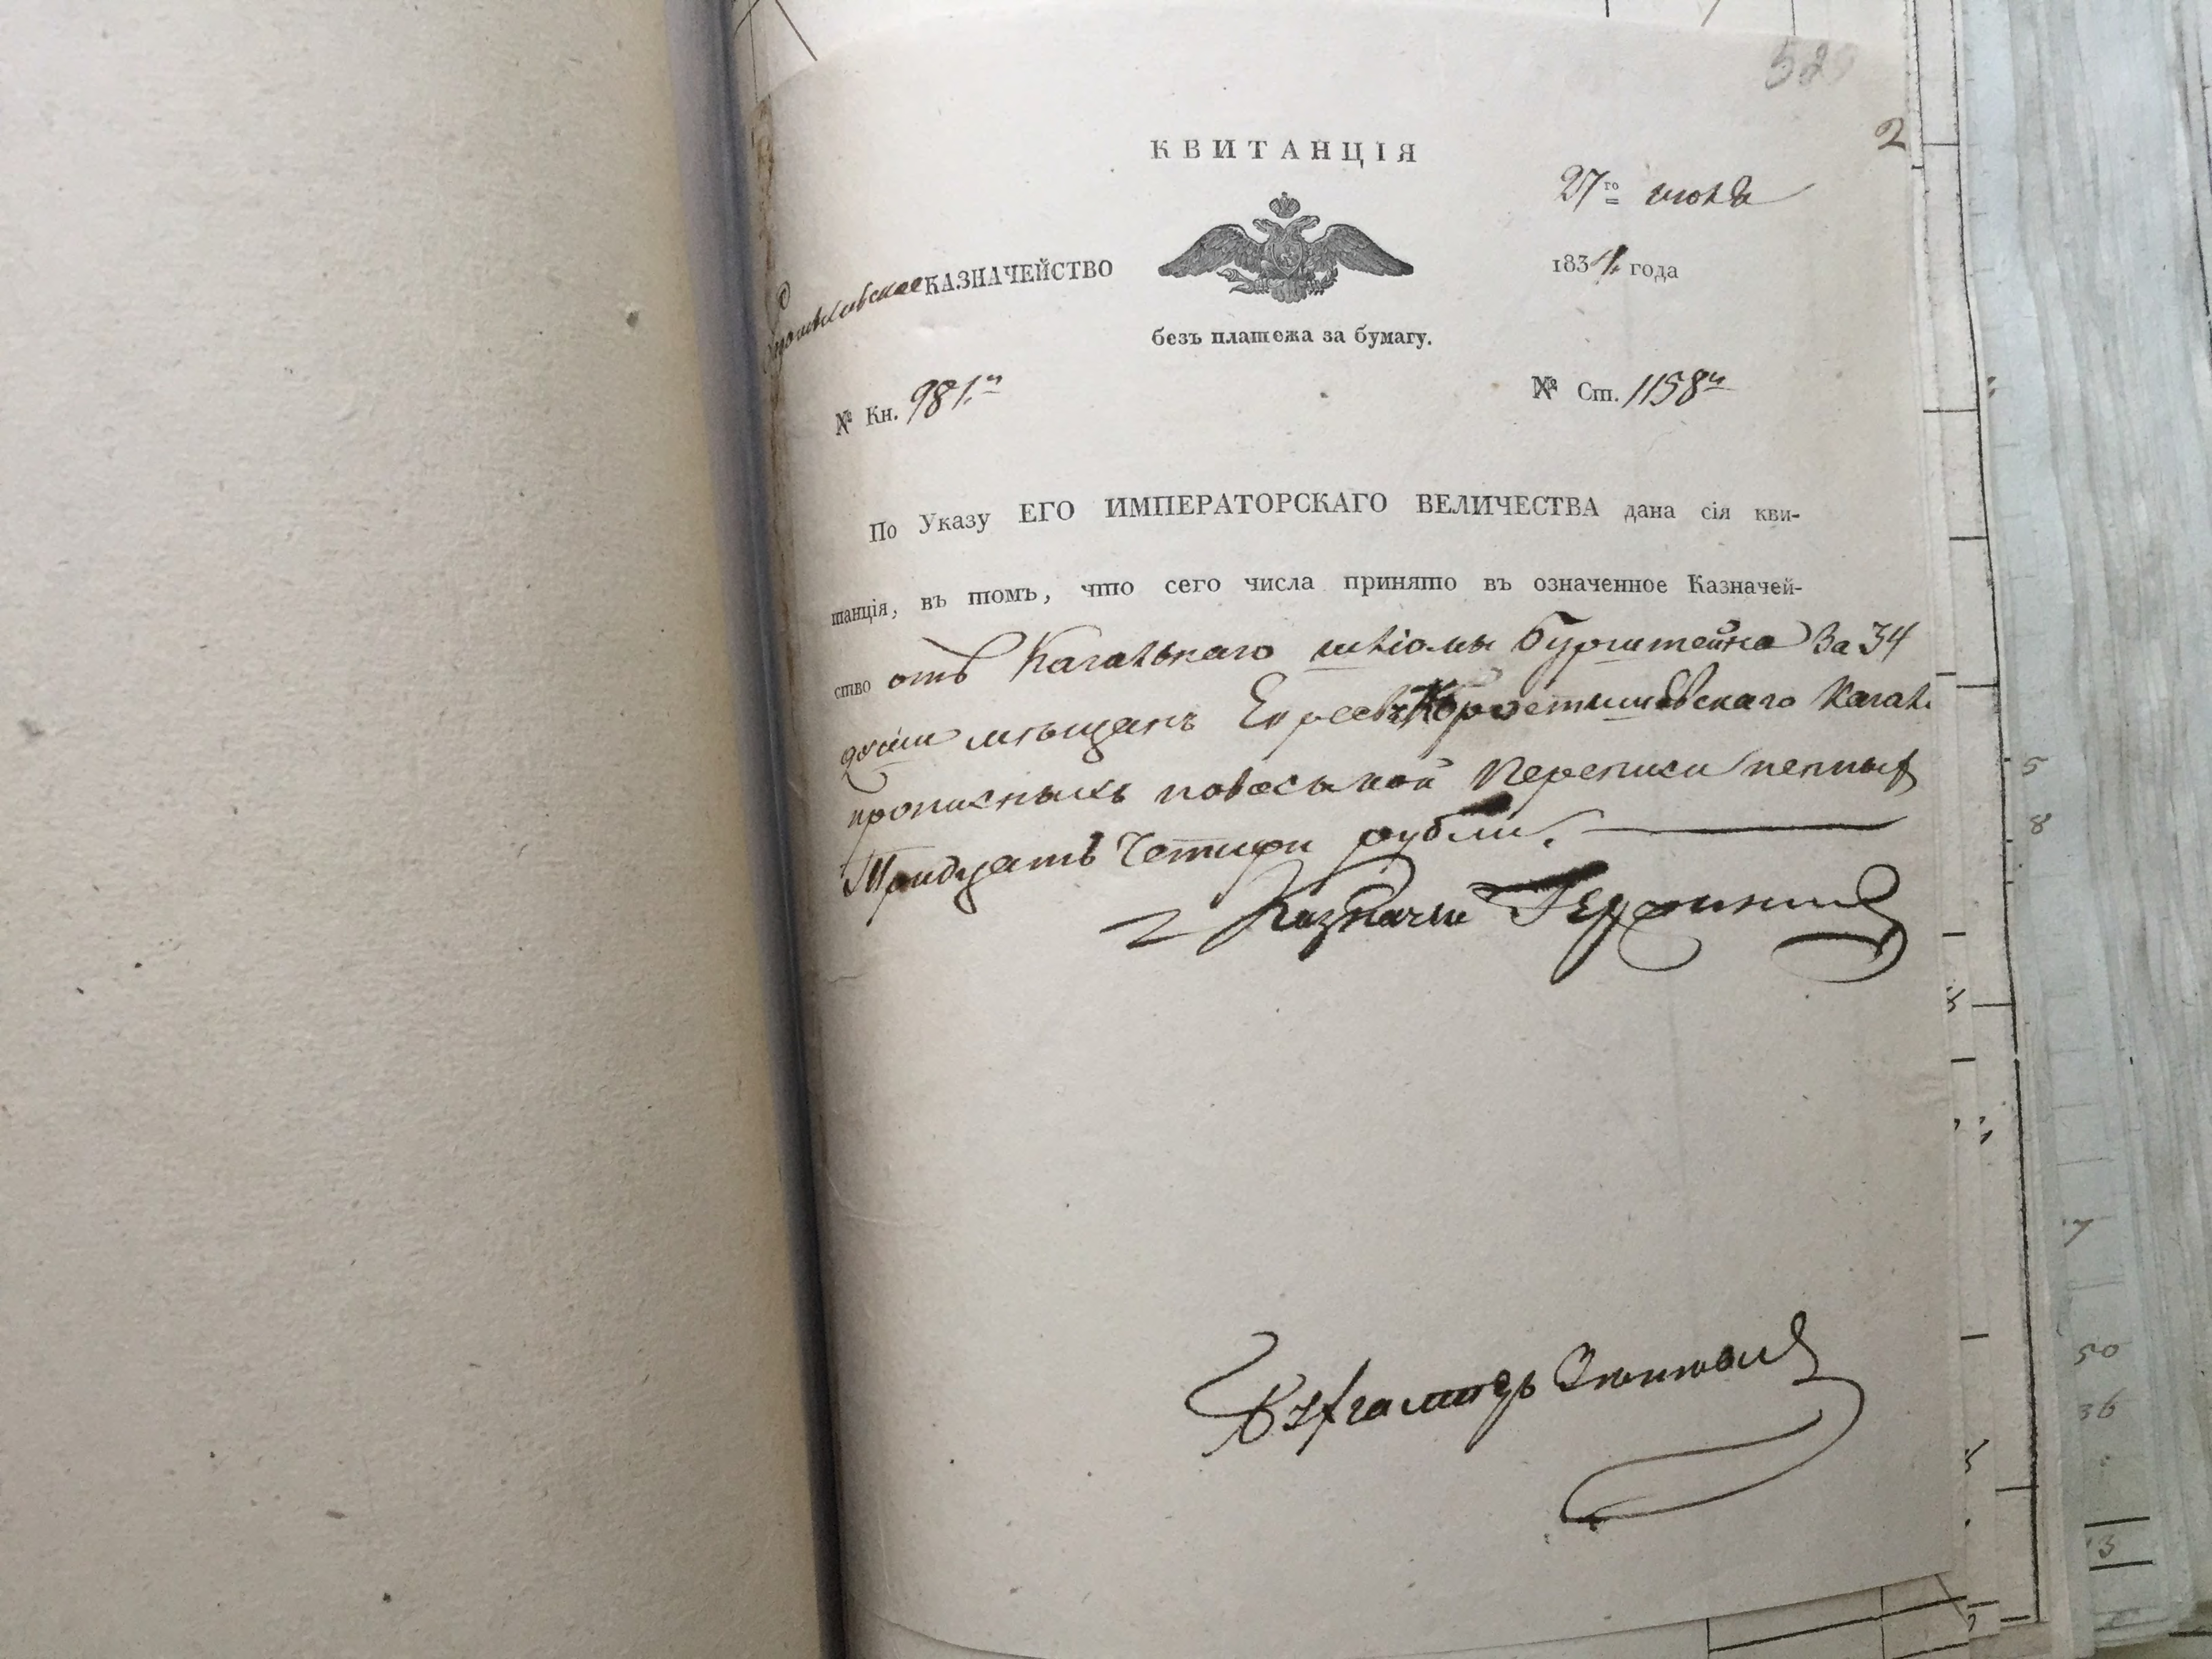 2
КВИТАНЦІЯ
27го июля
КАЗНАЧЕЙСТВО
1834 года
безъ платежа за бумагу.
№ Кн. 981.й
№ Ст. 1158й
По Указу ЕГО ИМПЕРАТОРСКАГО ВЕЛИЧЕСТВА дана сія кви-
танція, въ томъ, что сего числа принято въ означенное Казначей-
ство отъ Кагальнаго Шліомы Бурштейна За 34
души мѣщанъ Евреевъ Коростишевскаго Кагал
прописныхъ по восьмой Переписи пенныхъ
Тридцать Четири рубли.
Казначей
Бухгалтеръ
5
8
7
50
36
13